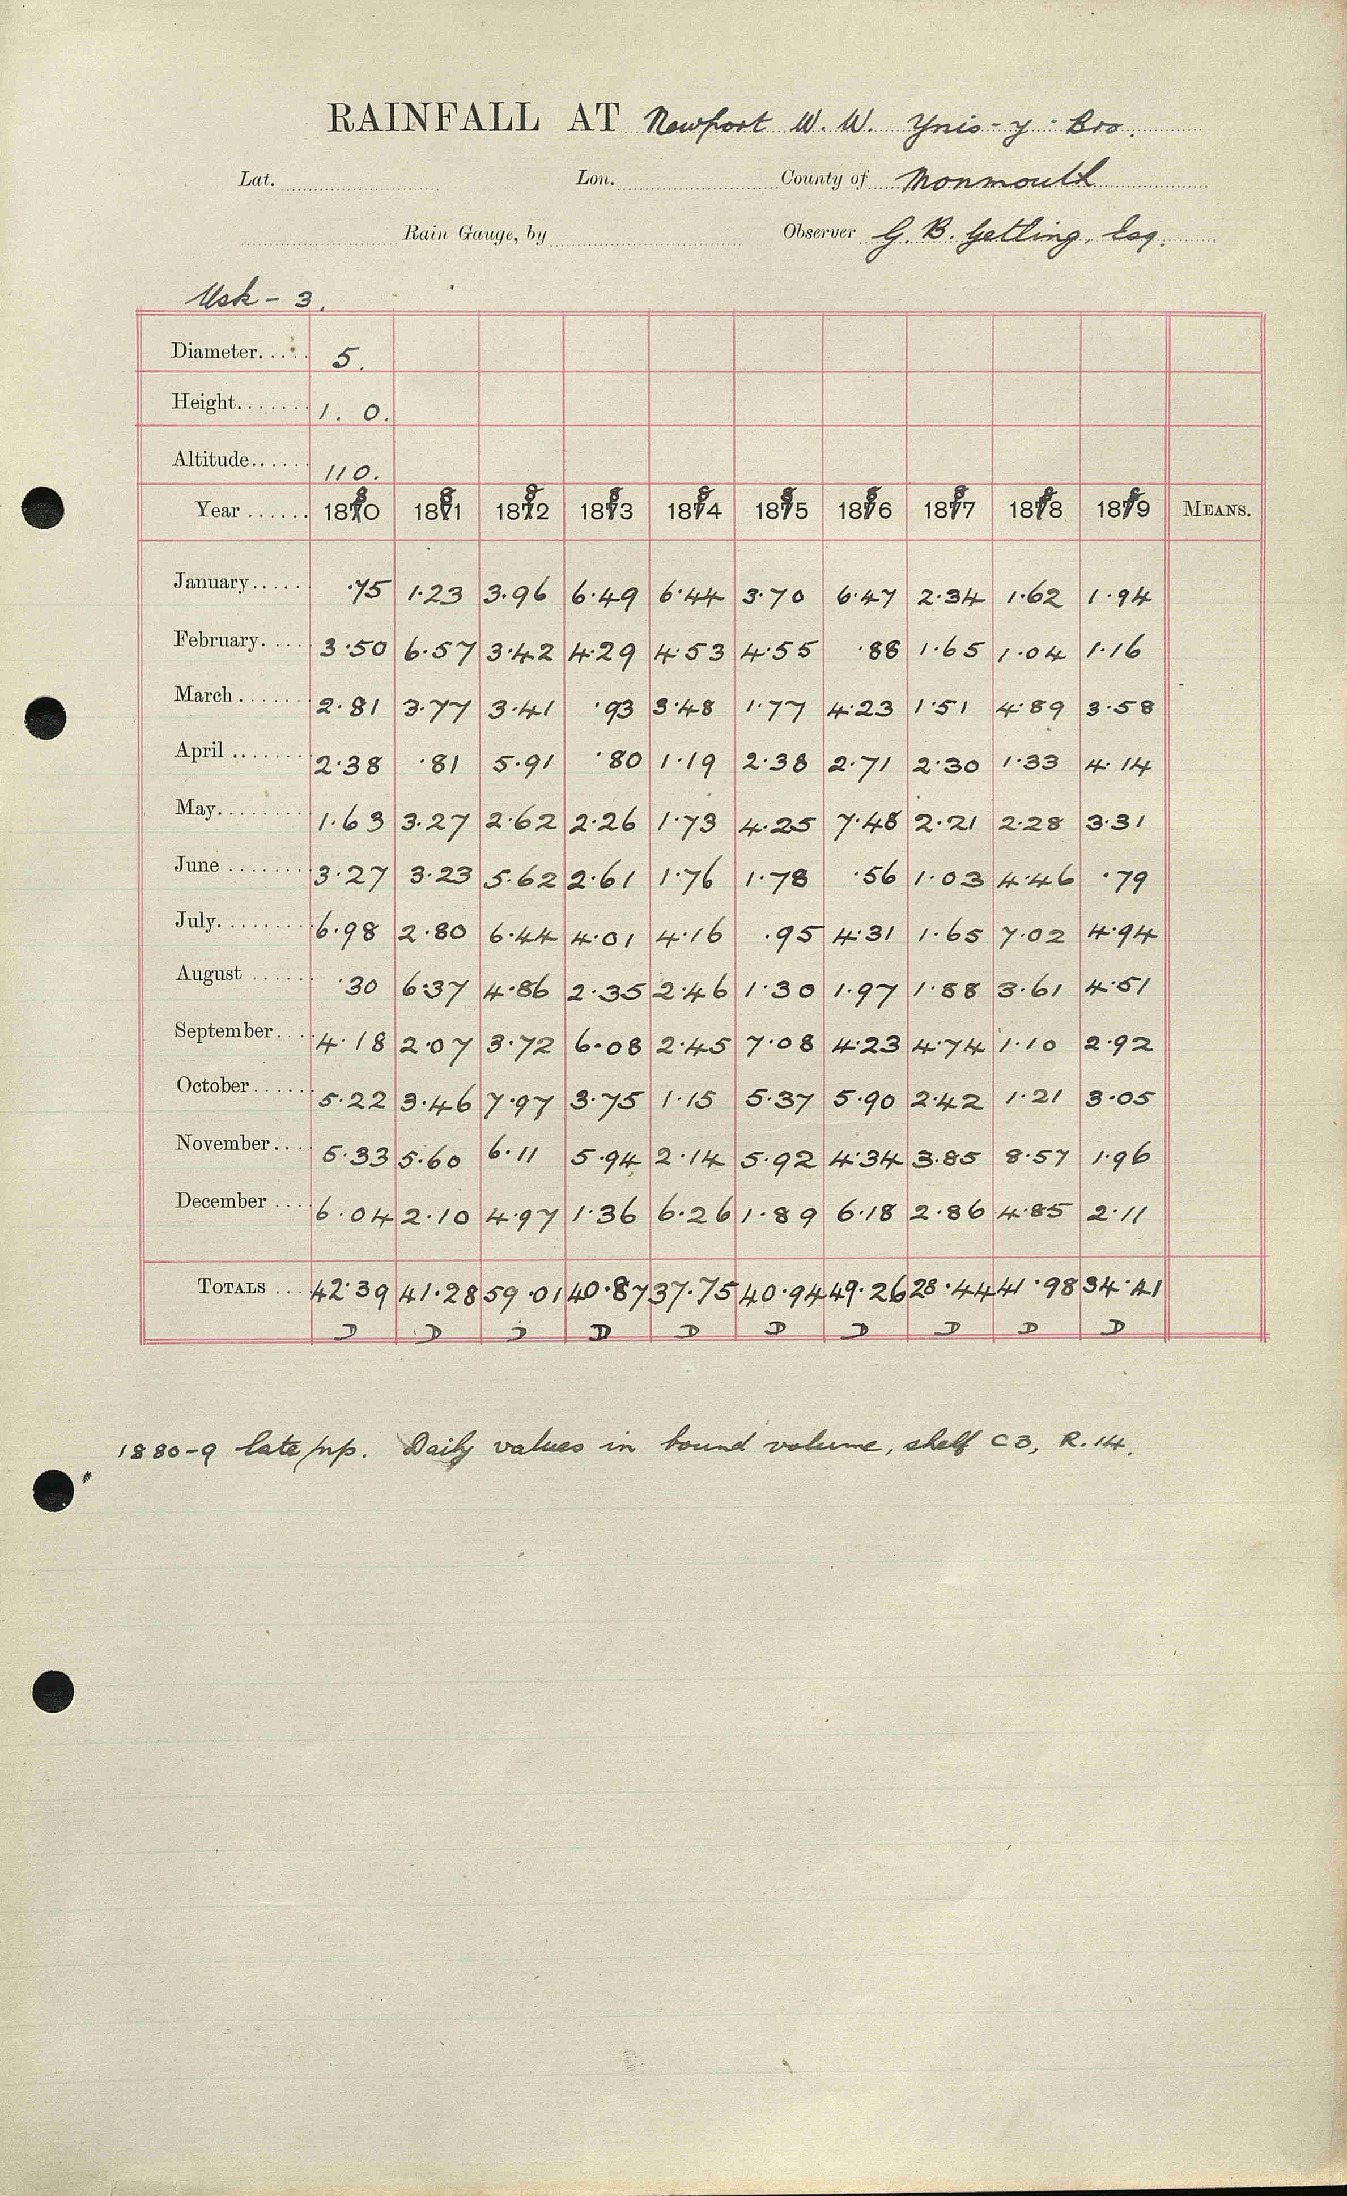 RAINFALL AT Newport W. W. Ynis-y-Bro.
Lat. Lon. County of Monmouth
Rain Gauge, by Observer G. B. Getling, Esq.
Usk - 3.
Diameter..... 5.
Height....... 1. 0.
Altitude...... 110.
Year ...... 1880 1881 1882 1883 1884 1885 1886 1887 1888 1889 MEANS.
January...... ·75 1·23 3·96 6·49 6·44 3·70 6·47 2·34 1·62 1·94
February..... 3·50 6·57 3·42 4·29 4·53 4·55 ·88 1·65 1·04 1·16
March ....... 2·81 3·77 3·41 ·93 3·48 1·77 4·23 1·51 4·89 3·58
April ........ 2·38 ·81 5·91 ·80 1·19 2·38 2·71 2·30 1·33 4·14
May......... 1·63 3·27 2·62 2·26 1·73 4·25 7·48 2·21 2·28 3·31
June ........ 3·27 3·23 5·62 2·61 1·76 1·78 ·56 1·03 4·46 ·79
July......... 6·98 2·80 6·44 4·01 4·16 ·95 4·31 1·65 7·02 4·94
August ...... ·30 6·37 4·86 2·35 2·46 1·30 1·97 1·88 3·61 4·51
September.... 4·18 2·07 3·72 6·08 2·45 7·08 4·23 4·74 1·10 2·92
October...... 5·22 3·46 7·97 3·75 1·15 5·37 5·90 2·42 1·21 3·05
November.... 5·33 5·60 6·11 5·94 2·14 5·92 4·34 3·85 8·57 1·96
December .... 6·04 2·10 4·97 1·36 6·26 1·89 6·18 2·86 4·85 2·11
TOTALS ... 42·39 41·28 59·01 40·87 37·75 40·94 49·26 28·44 41·98 34·41
D D D D D D D D D D
1880-9 late/np. Daily values in bound volume, shelf C3, R.14.